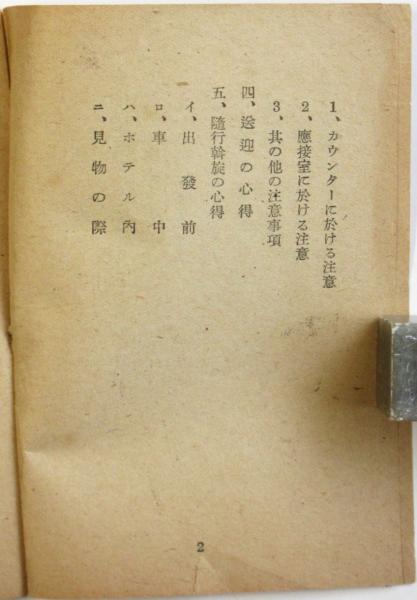 1、カウンターに於ける注意
2、應接室に於ける注意
3、其の他の注意事項
四、送迎の心得
五、隨行斡旋の心得
イ、出發前
ロ、車中
ハ、ホテル內
ニ、見物の際
2